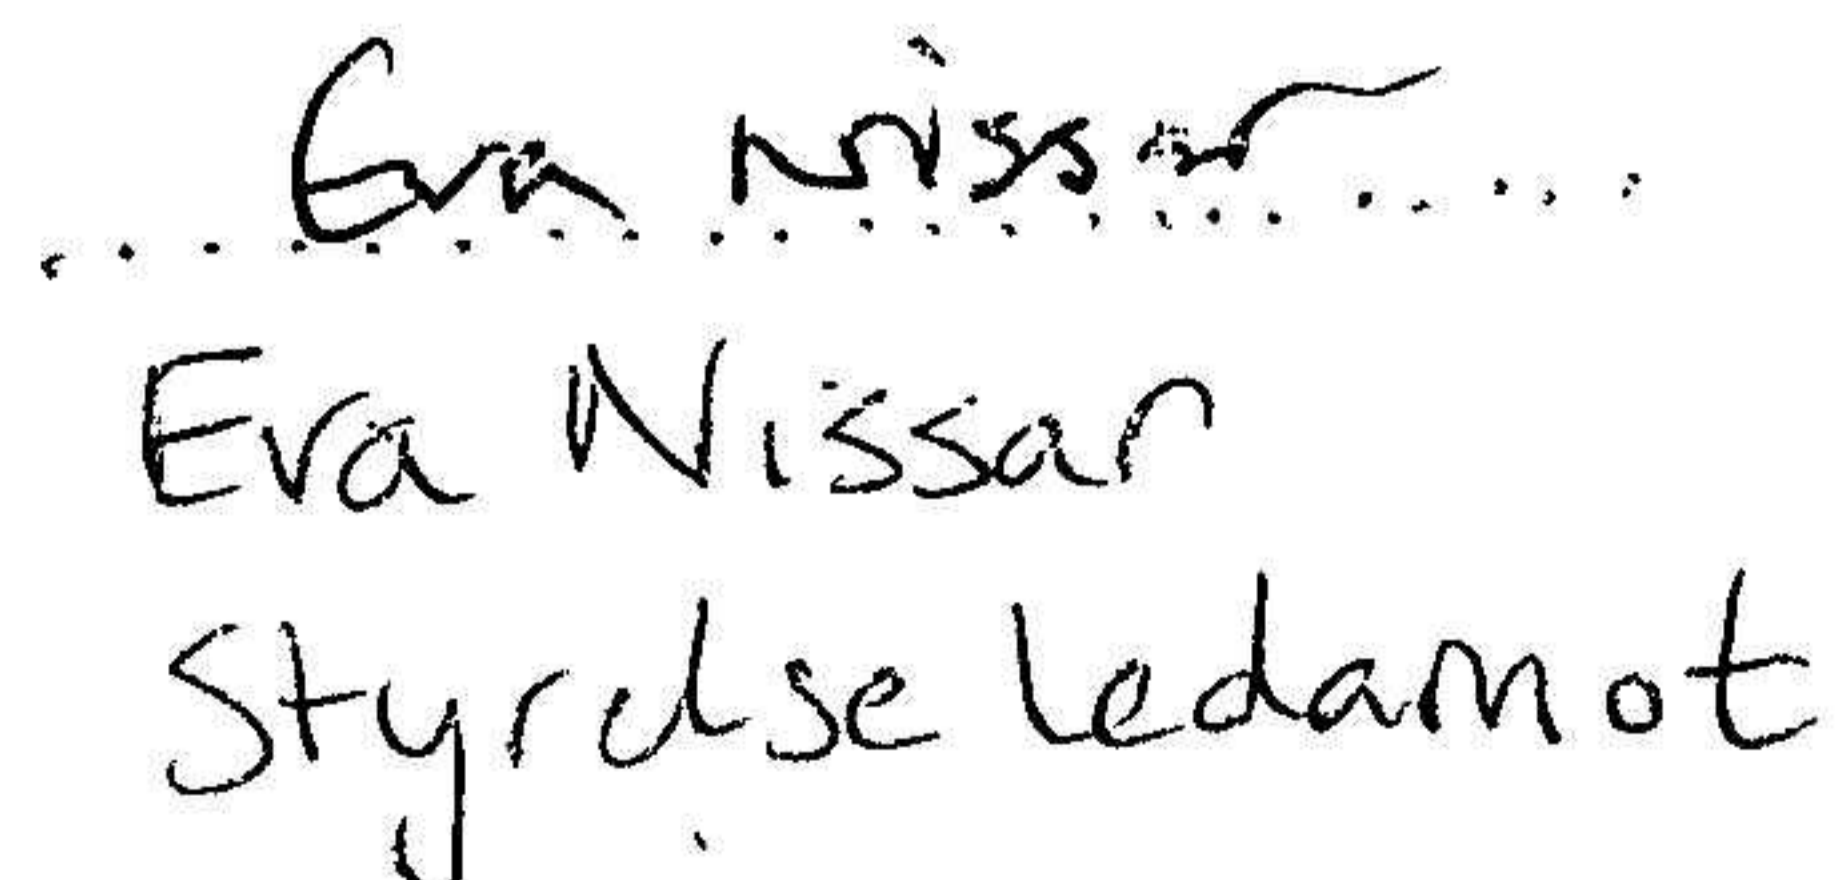 Eva Nissar
Eva Nissar
Styrelse ledamot